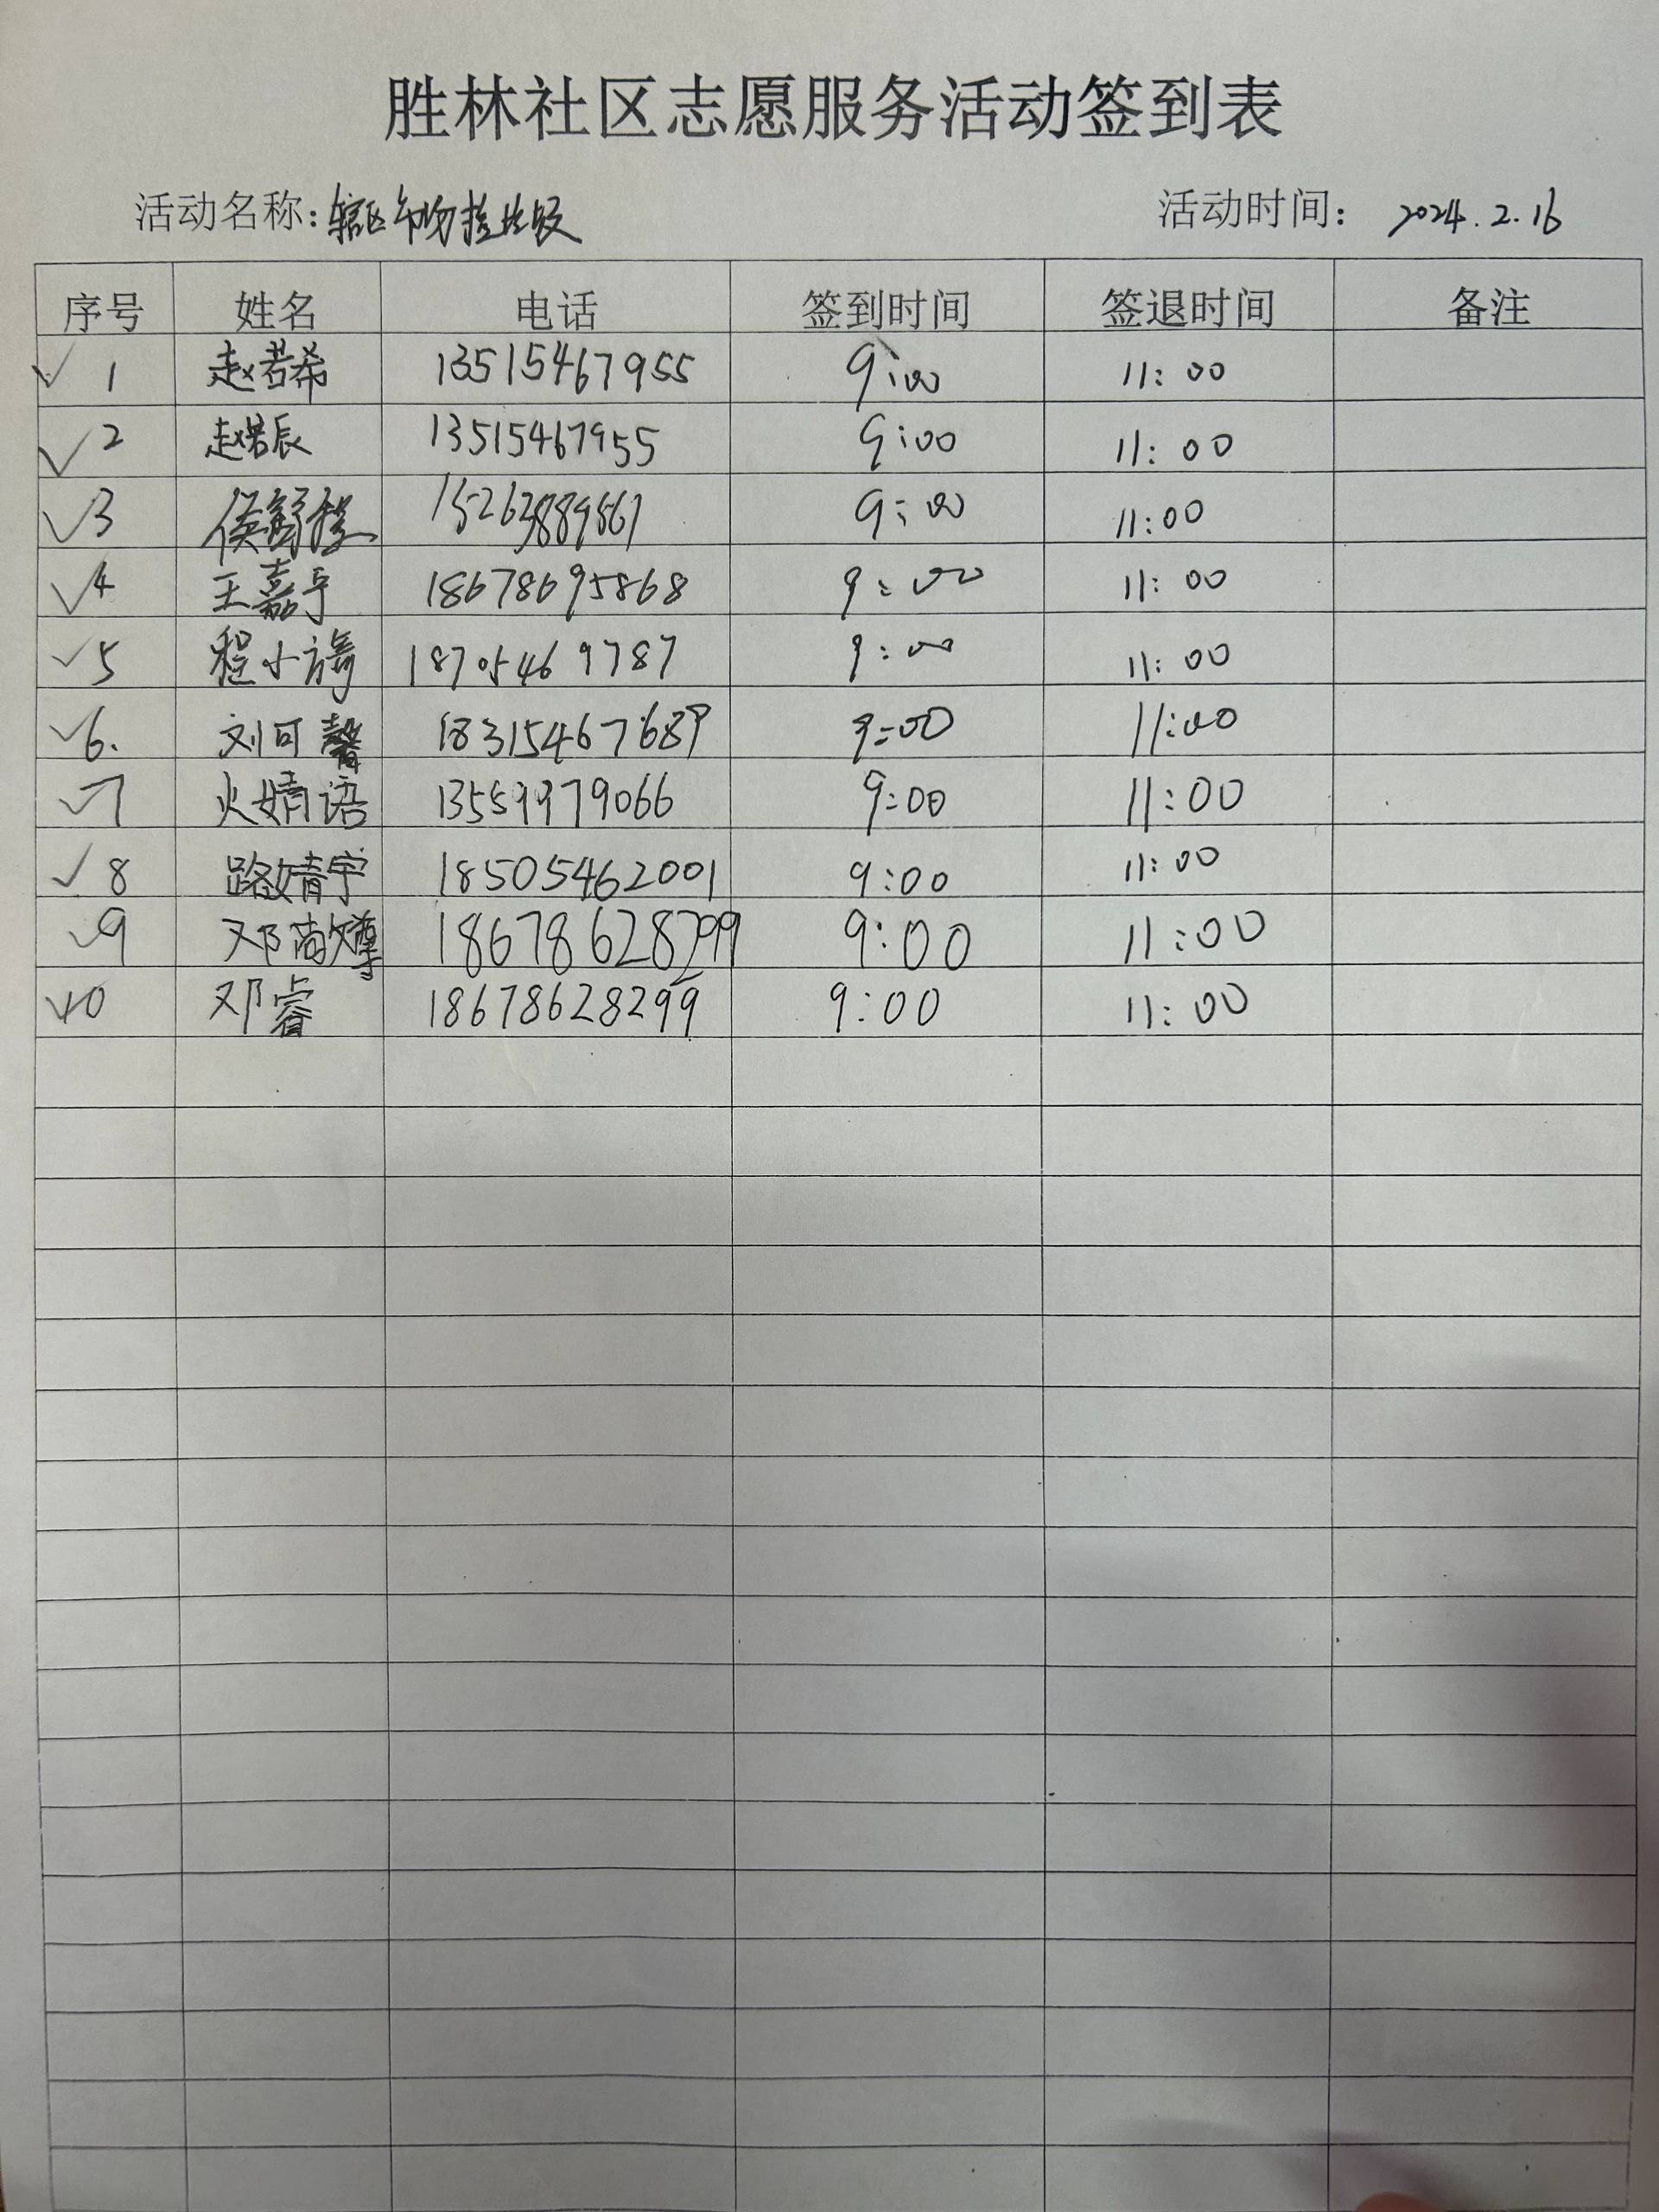 胜林社区志愿服务活动签到表
活动名称: 辖区 捡垃圾 活动时间: 2024.2.16
序号 姓名 电话 签到时间 签退时间 备注
✓ 1 赵若希 13515467955 9:00 11:00
✓ 2 赵若辰 13515467955 9:00 11:00
✓ 3 侯 15263889567 9:00 11:00
✓ 4 王嘉宇 18678695868 9:00 11:00
✓ 5 程小 18705469787 9:00 11:00
✓ 6. 刘可馨 18315467689 9:00 11:00
✓ 7 火婧语 13559979066 9:00 11:00
✓ 8 路婧宇 18505462001 9:00 11:00
✓ 9 邓尚 18678628299 9:00 11:00
✓ 10 邓睿 18678628299 9:00 11:00